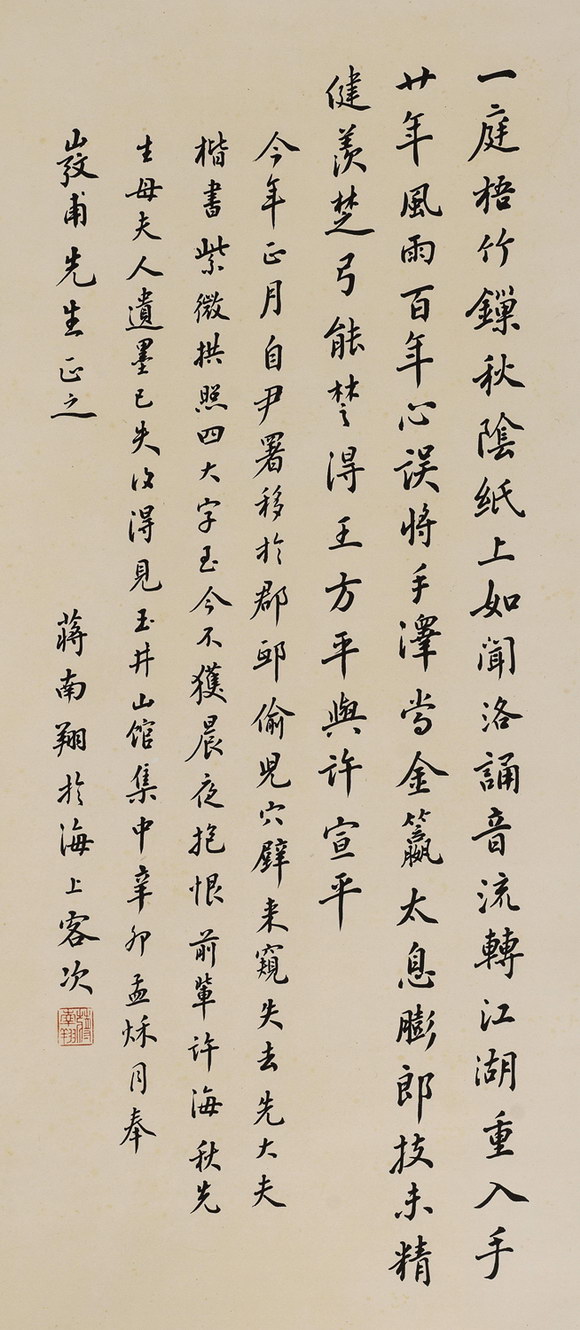 一庭梧竹鏁秋陰紙上如聞洛誦音流轉江湖重入手
廿年風雨百年心誤將手澤當金籯太息膨郎技未精
健羨楚弓能楚得王方平與許宣平
今年正月自尹署移於郡邸偷兒穴壁来窺失去先大夫
楷書紫微拱照四大字至今不獲晨夜抱恨前輩許海秋先
生母夫人遺墨已失復得見玉井山館集中辛卯孟秌月奉
先生正之
蔣南翔於海上客次